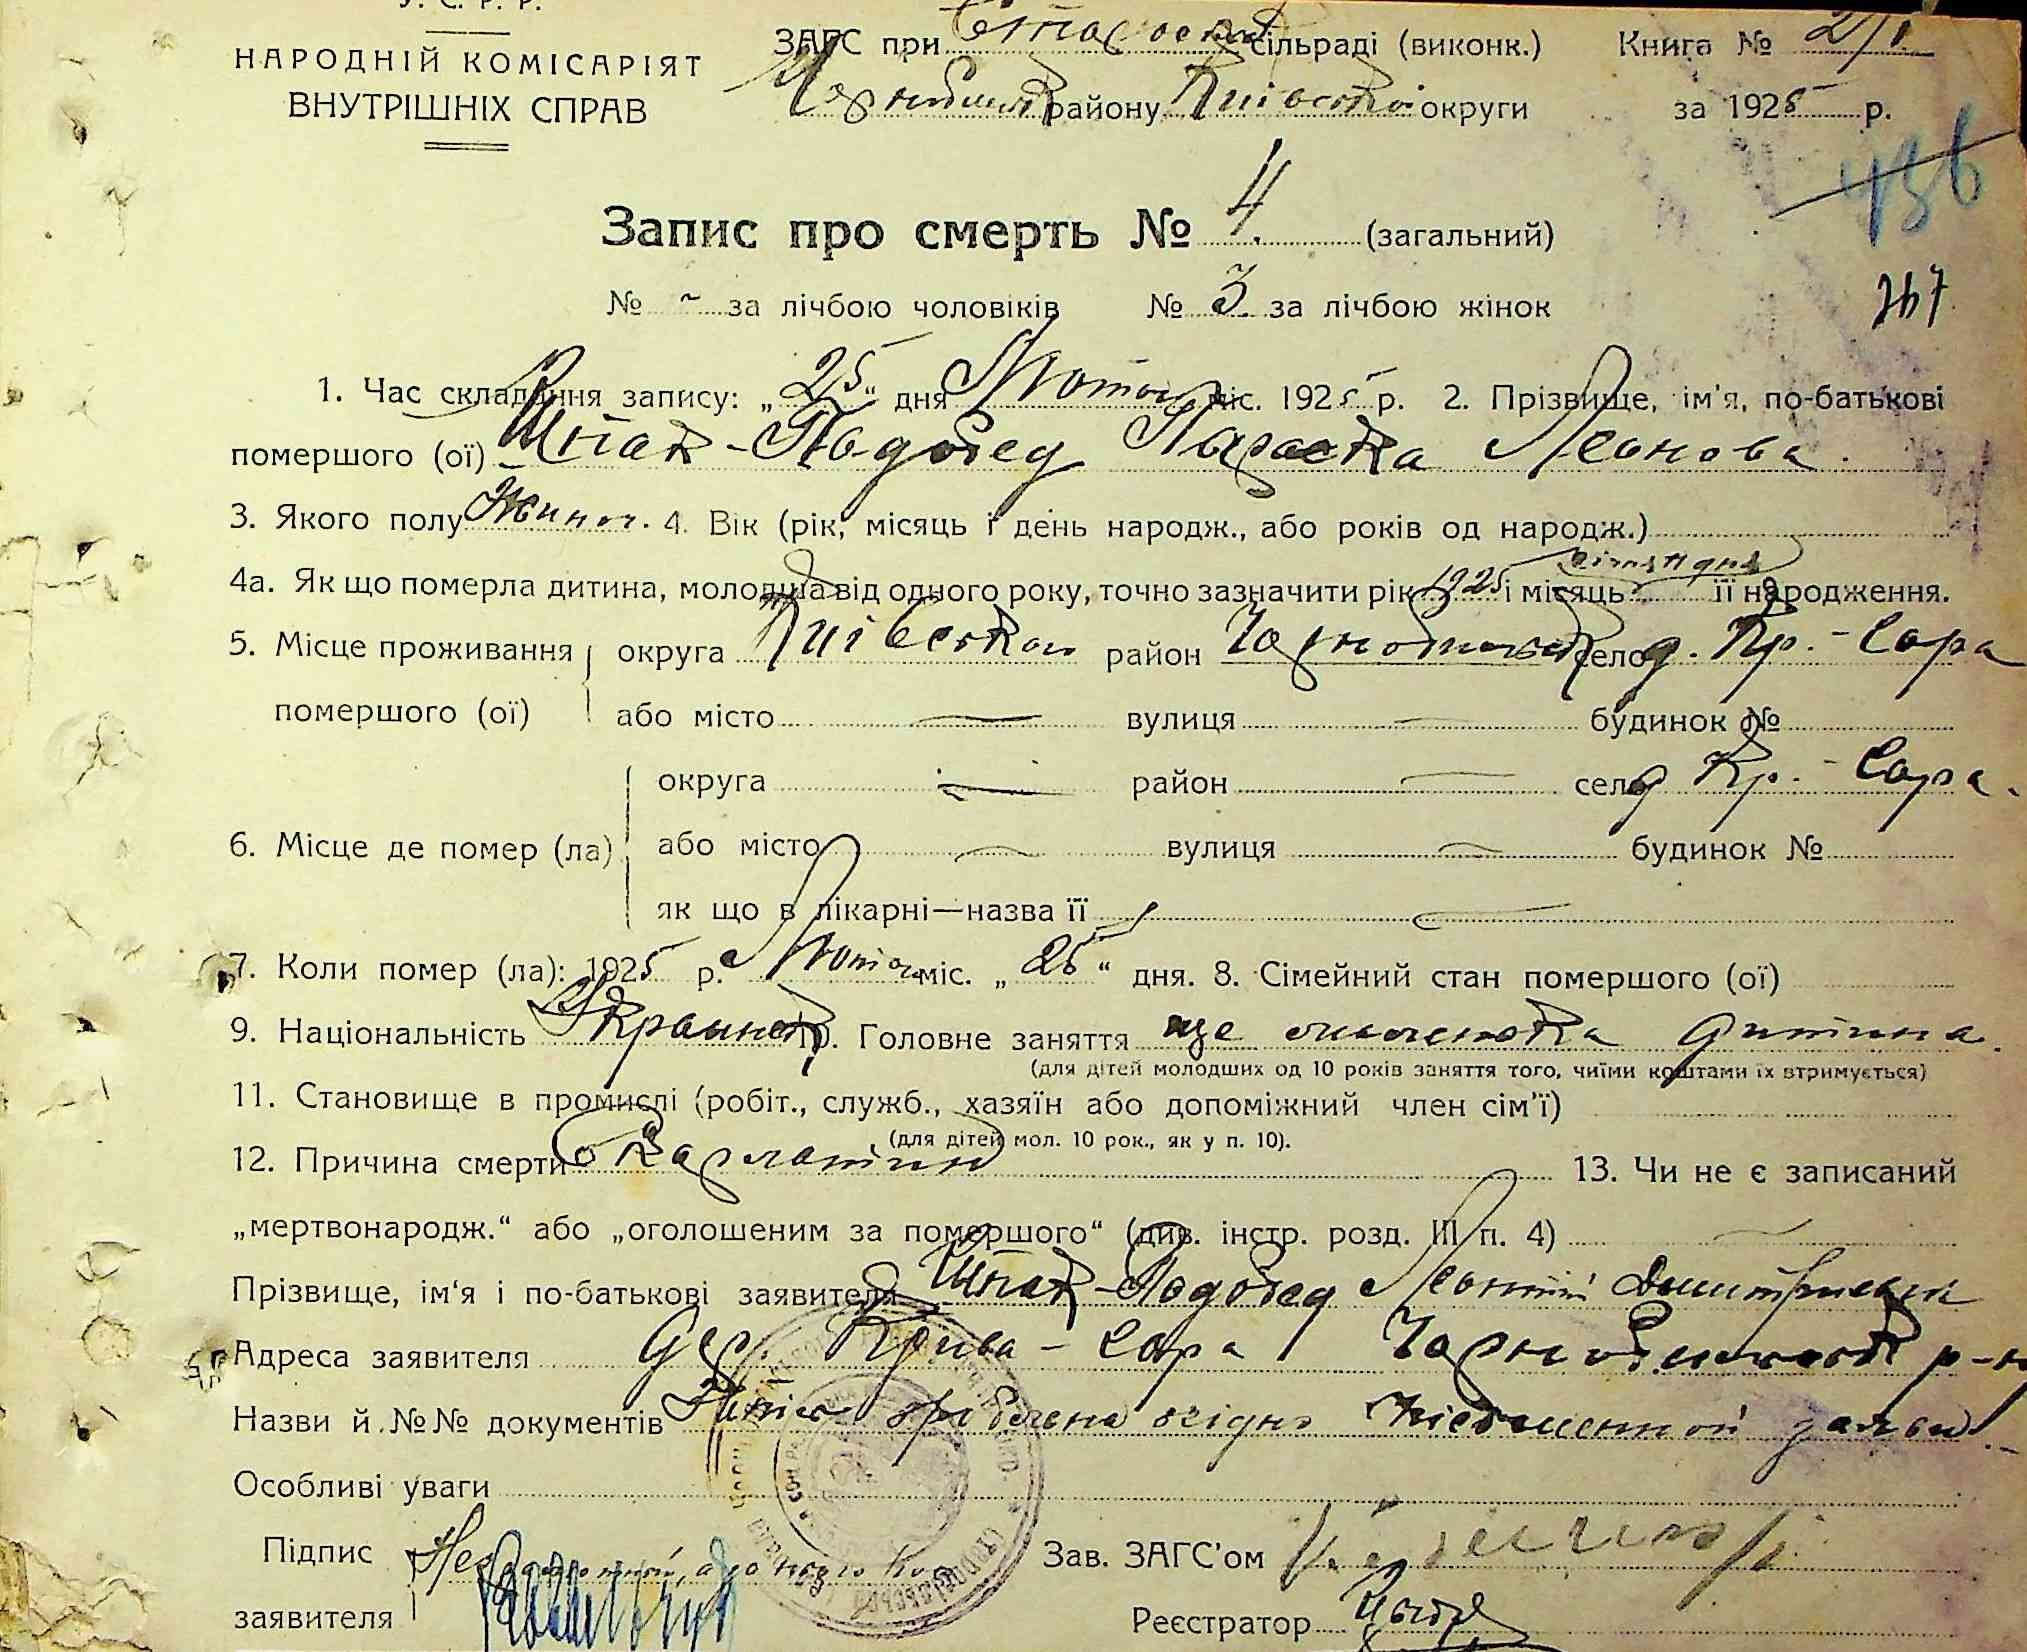 У. С. Р. Р.
НАРОДНІЙ КОМІСАРІЯТ
ВНУТРІШНІХ СПРАВ
ЗАГС при сільраді (виконк.) Книга № 2/1
району Київської округи за 1925 р.
436
Запис про смерть № 4 (загальний)
№ - за лічбою чоловіків № 3 за лічбою жінок
267
1. Час складання запису: „25“ дня Лютого міс. 1925 р. 2. Прізвище, ім'я, по-батькові
помершого (ої) Шпак-Подобед Параска Леонова.
3. Якого полу Жиноч. 4. Вік (рік, місяць і день народж., або років од народж.)
4а. Як що померла дитина, молодша від одного року, точно зазначити рік 1925 і місяць січня її народження.
5. Місце проживання округа Київської район Чорнобильськ село д. Кр.-Гора
помершого (ої) або місто — вулиця — будинок №
округа — район — село д Кр.-Гора.
6. Місце де помер (ла) або місто — вулиця — будинок №
як що в лікарні—назва її —
7. Коли помер (ла): 1925 р. Лютого міс. „25“ дня. 8. Сімейний стан помершого (ої)
9. Національність Украінськ 10. Головне заняття ще дитина.
(для дітей молодших од 10 років заняття того, чиїми коштами їх втримується)
11. Становище в промислі (робіт., служб., хазяїн або допоміжний член сім'ї)
(для дітей мол. 10 рок., як у п. 10).
12. Причина смерти 13. Чи не є записаний
„мертвонародж.“ або „оголошеним за помершого“ (див. інстр. розд. III п. 4) —
Прізвище, ім'я і по-батькові заявителя Шпак-Подобед Леонтій Дмитриевич
Адреса заявителя дер. Крива-Гора Чорнобильськ р-н
Назви й №№ документів Запис зроблена згідно заяви
Особливі уваги
Підпис Неграмотный, а за нього
заявителя
Зав. ЗАГС'ом
Реєстратор